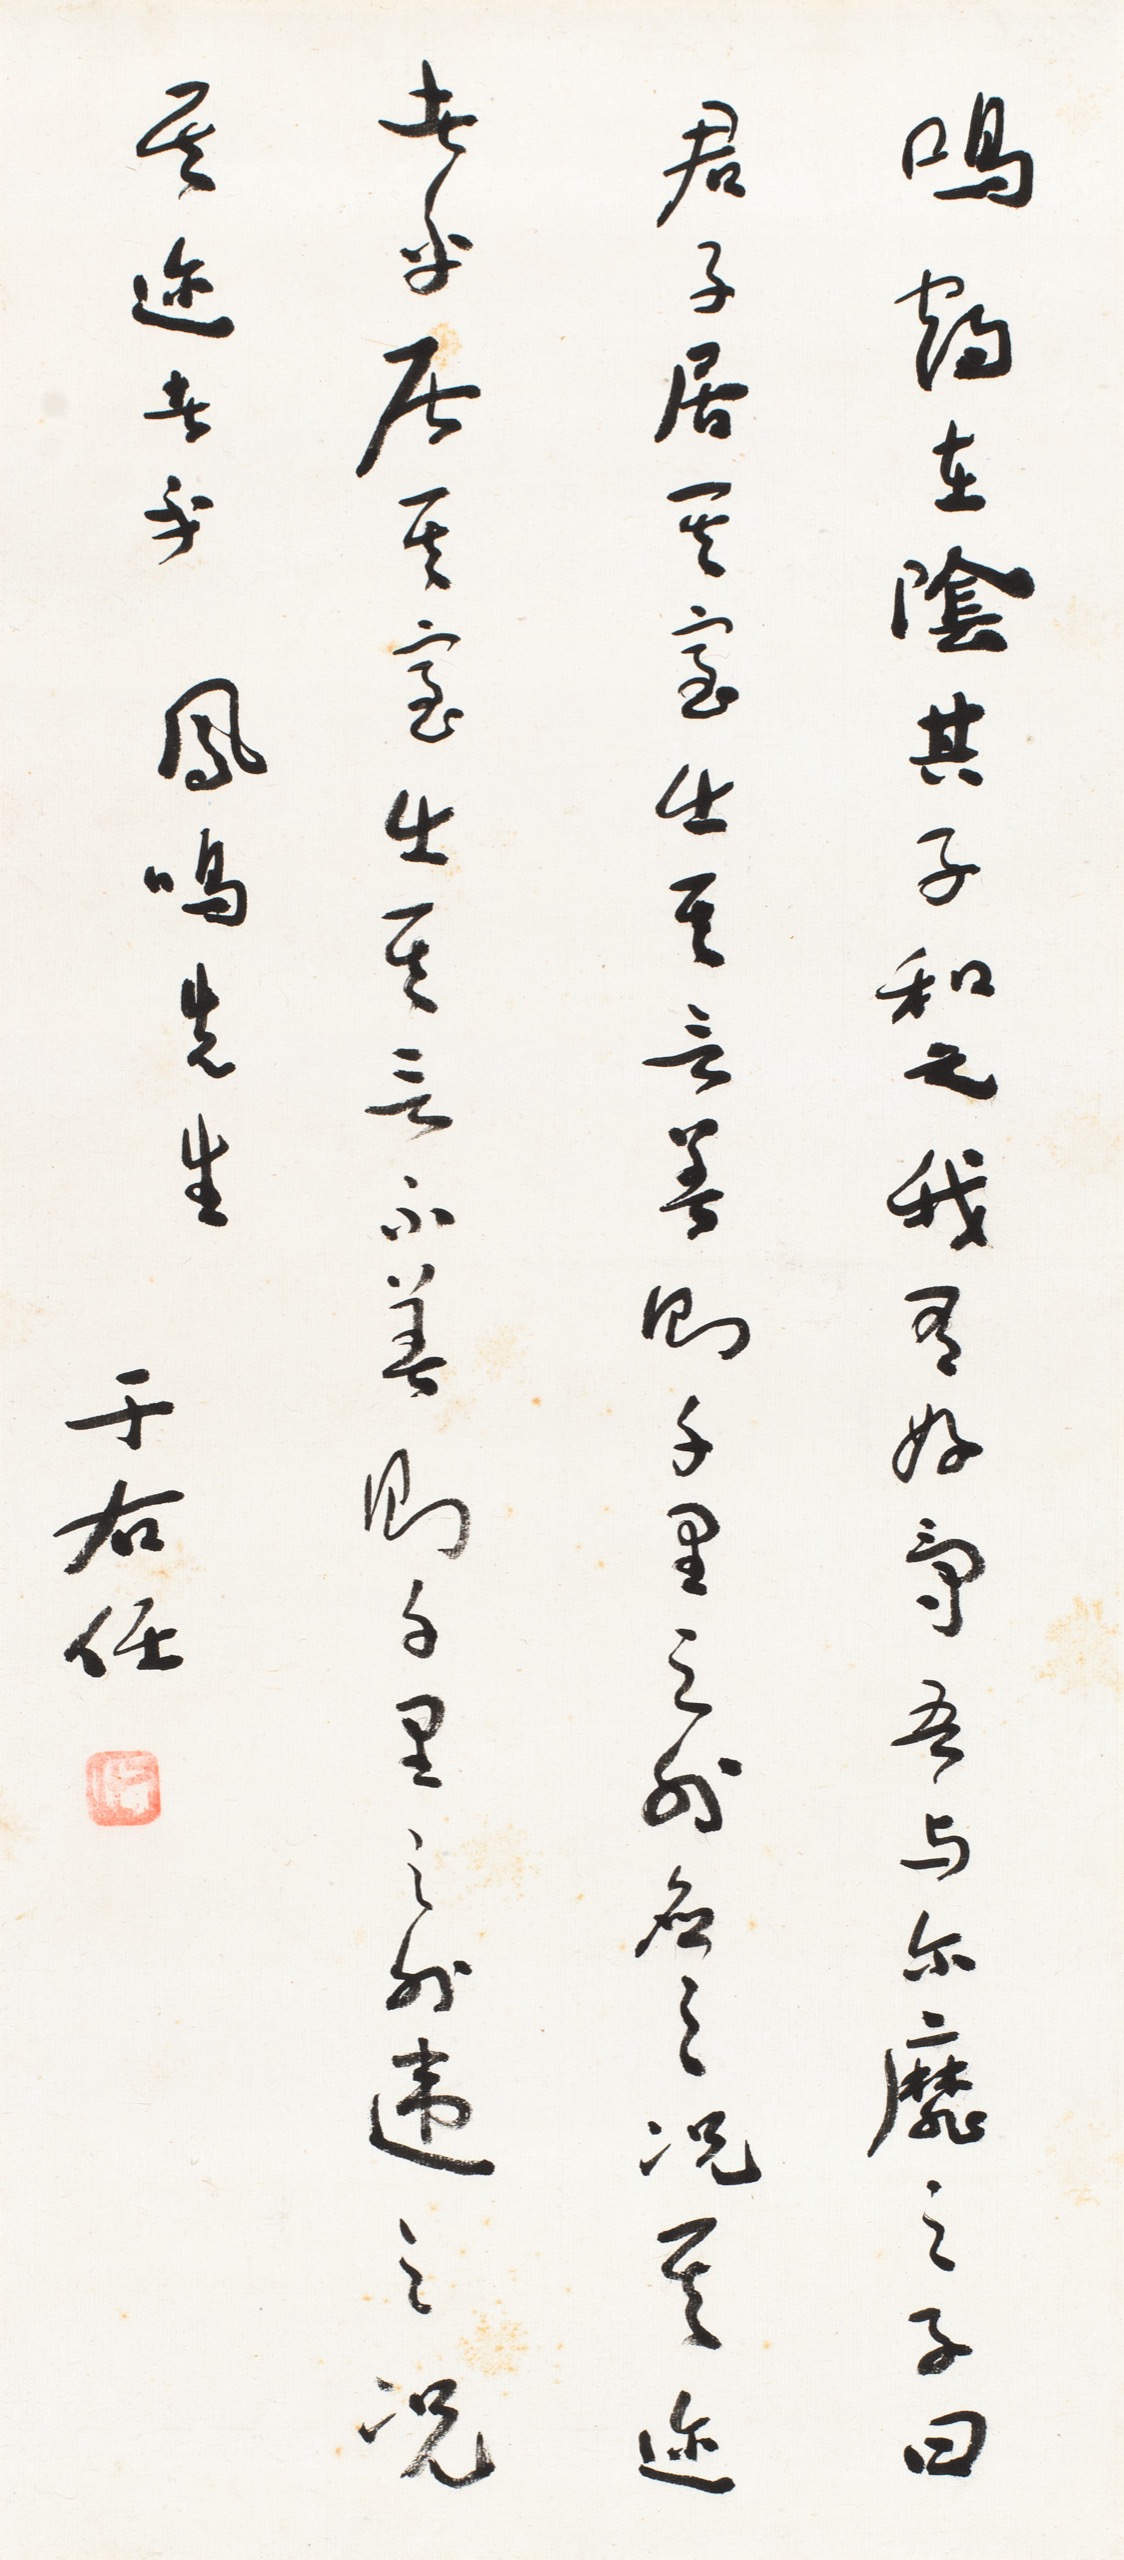 鳴鶴在陰其子和之我有好爵吾与尔靡之子曰
君子居其室出其言善則千里之外應之况其迩
者乎居其室出其言不善則千里之外違之况
其迩者乎 鳳鳴先生
于右任